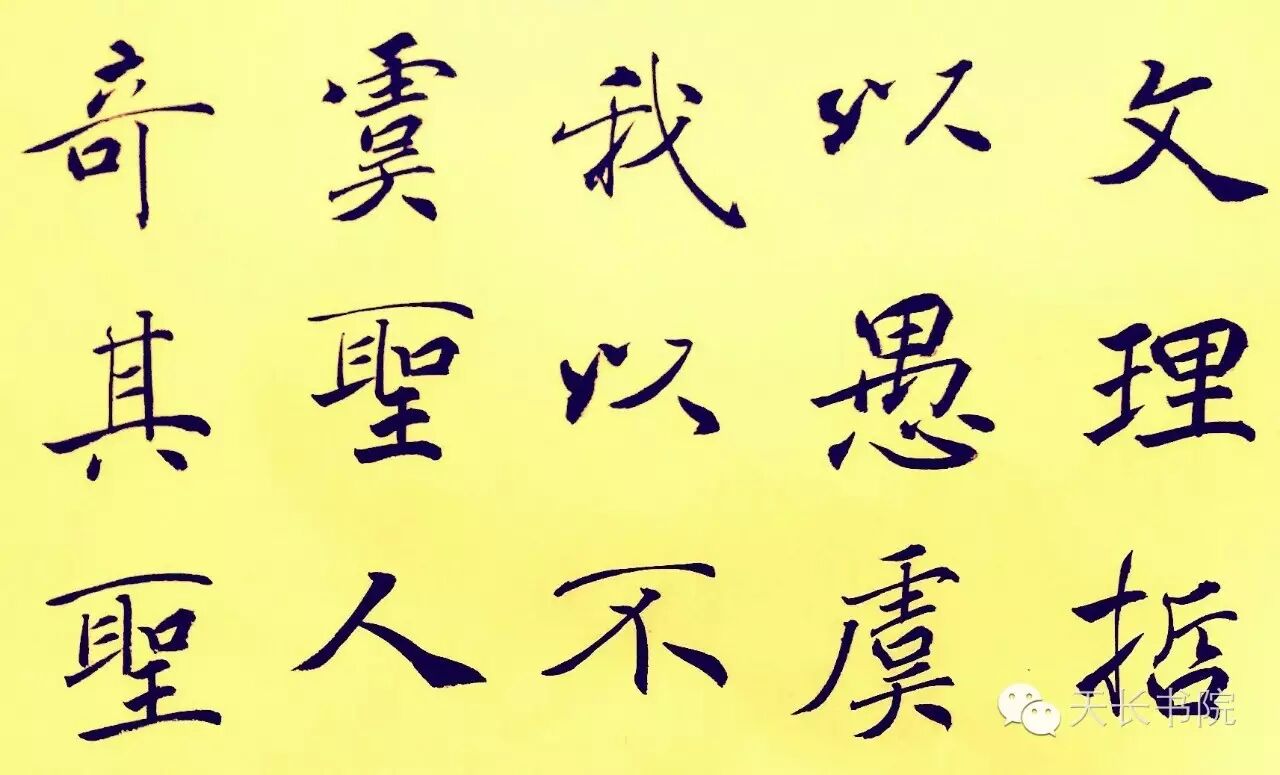 文理哲
以愚虞
我以不
虞聖人
奇其聖
天长书院